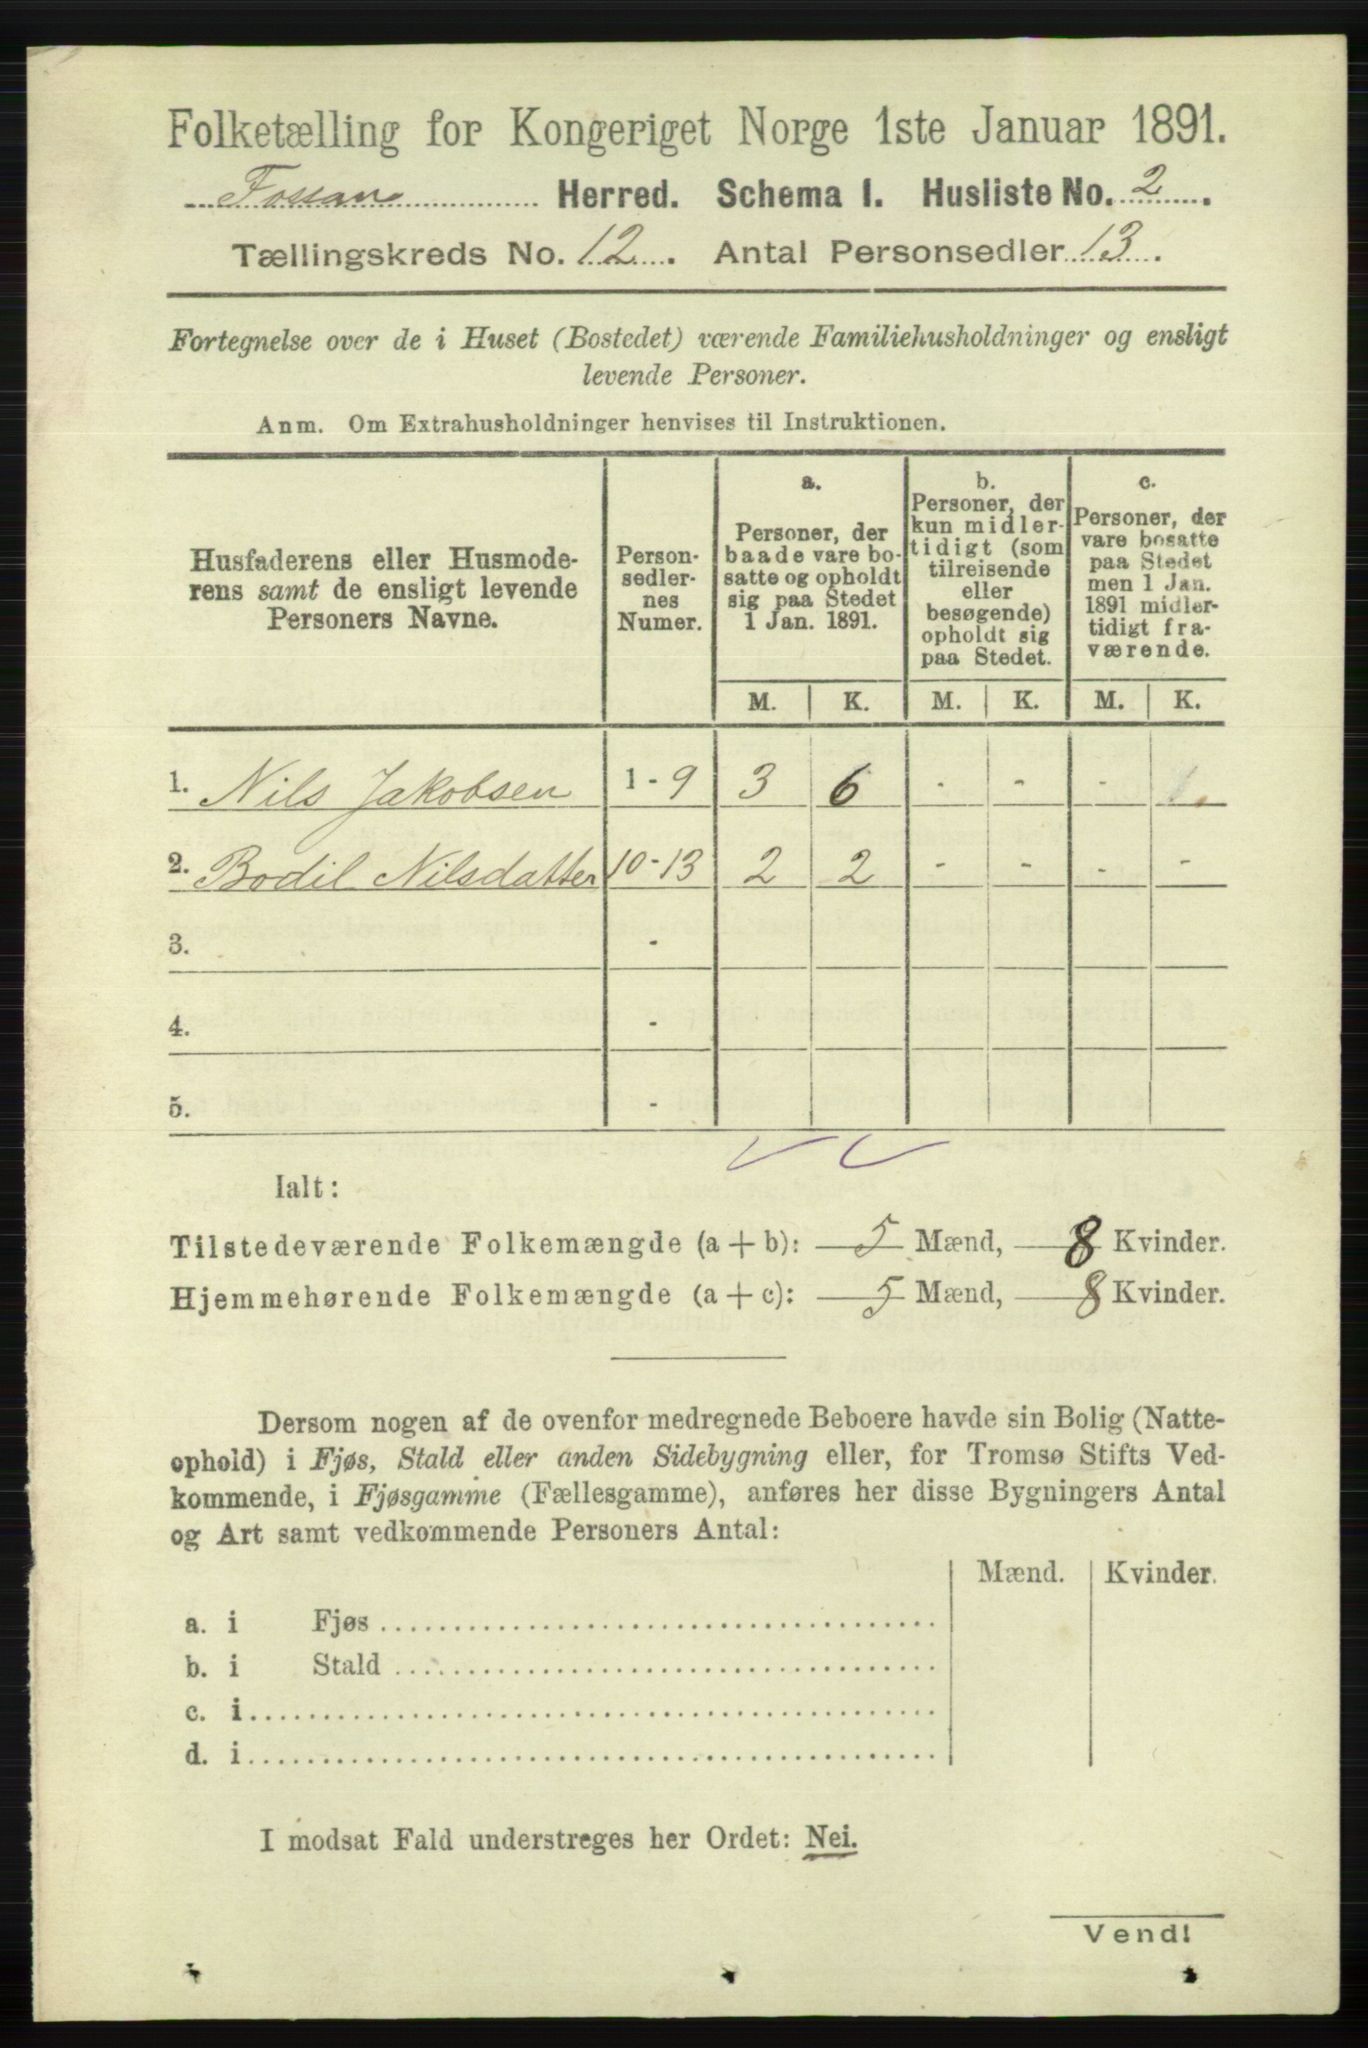 Folketælling for Kongeriget Norge 1ste Januar 1891.
Fossan Herred. Schema I. Husliste No. 2.
Tællingskreds No. 12. Antal Personsedler 13.
Fortegnelse over de i Huset (Bostedet) værende Familiehusholdninger og ensligt
levende Personer.
Anm. Om Extrahusholdninger henvises til Instruktionen.
Husfaderens eller Husmode-
rens samt de ensligt levende
Personers Navne.
Person-
sedler-
nes
Numer.
a.
Personer, der
baade vare bo-
satte og opholdt
sig paa Stedet
1 Jan. 1891.
b.
Personer, der
kun midler-
tidigt (som
tilreisende
eller
besøgende)
opholdt sig
paa Stedet.
c.
Personer, der
vare bosatte
paa Stedet
men 1 Jan.
1891 midler-
tidigt fra-
værende.
M. K. M. K. M. K.
1. Nils Jakobsen 1 - 9 3 6 - - -
2. Bodil Nilsdatter 10 - 13 2 2 - - - -
3. -
4. -
5. -
Ialt:
Tilstedeværende Folkemængde (a + b): 5 Mænd, 8 Kvinder.
Hjemmehørende Folkemængde (a + c): 5 Mænd, 8 Kvinder.
Dersom nogen af de ovenfor medregnede Beboere havde sin Bolig (Natte-
ophold) i Fjøs, Stald eller anden Sidebygning eller, for Tromsø Stifts Ved-
kommende, i Fjøsgamme (Fællesgamme), anføres her disse Bygningers Antal
og Art samt vedkommende Personers Antal:
Mænd. Kvinder.
a. i Fjøs
b. i Stald
c. i
d. i
I modsat Fald understreges her Ordet: Nei.
Vend!